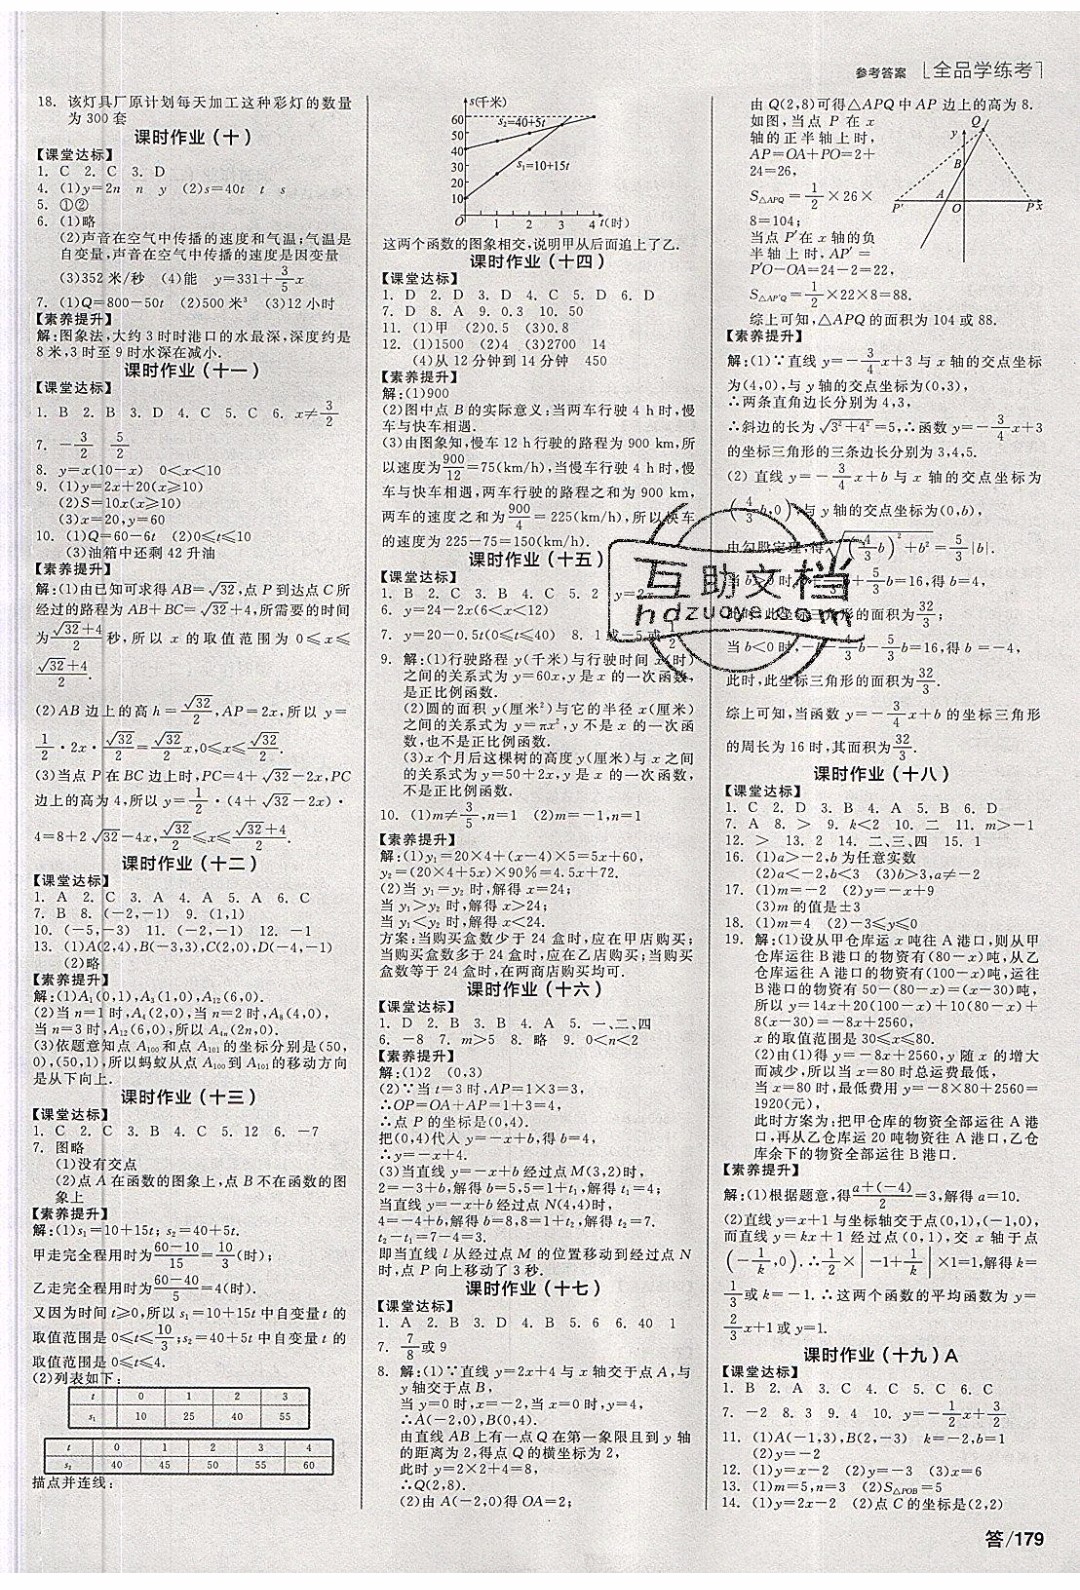 参考答案 全品学练考
18. 该灯具厂原计划每天加工这种彩灯的数量
为 300 套
课时作业(十)
【课堂达标】
1. C 2. C 3. D
4. (1)y=2n n y (2)s=40t t s
5. ①②
6. (1)略
(2)声音在空气中传播的速度和气温;气温是
自变量,声音在空气中传播的速度是因变量
(3)352 米/秒 (4)能 y=331+3/5x
7. (1)Q=800-50t (2)500 米³ (3)12 小时
【素养提升】
解:图象法,大约 3 时时港口的水最深,深度约是
8 米,3 时至 9 时水深在减小.
课时作业(十一)
【课堂达标】
1. B 2. B 3. D 4. C 5. C 6. x≠3/2
7. -3/2 5/2
8. y=x(10-x) 0<x<10
9. (1)y=2x+20(x≥10)
(2)S=10x(x≥10)
(3)x=20,y=60
10. (1)Q=60-6t (2)0≤t≤10
(3)油箱中还剩 42 升油
【素养提升】
解:(1)由已知可求得 AB=√32,点 P 到达点 C 所
经过的路程为 AB+BC=√32+4,所需要的时间
为(√32+4)/2秒,所以 x 的取值范围为 0≤x≤
(√32+4)/2.
(2)AB 边上的高 h=√32/2,AP=2x,所以 y=
1/2·2x·√32/2=√32/2x,0≤x≤√32/2.
(3)当点 P 在 BC 边上时,PC=4+√32-2x,PC
边上的高为 4,所以 y=1/2·(4+√32-2x)·
4=8+2√32-4x,√32/2≤x≤(√32+4)/2.
课时作业(十二)
【课堂达标】
1. A 2. C 3. A 4. A 5. A 6. C
7. B 8. (-2,-1) 9. (1,1)
10. (-5,-3) 11. (-2,-1) 12. -1
13. (1)A(2,4),B(-3,3),C(2,0),D(-4,-1)
(2)略
【素养提升】
解:(1)A₁(0,1),A₃(1,0),A₁₂(6,0).
(2)当 n=1 时,A₄(2,0),当 n=2 时,A₈(4,0),
当 n=3 时,A₁₂(6,0),所以 A₄ₙ(2n,0).
(3)依题意知点 A₁₀₀和点 A₁₀₁的坐标分别是(50,
0),(50,1),所以蚂蚁从点 A₁₀₀到 A₁₀₁的移动方向
是从下向上.
课时作业(十三)
【课堂达标】
1. C 2. C 3. B 4. C 5. 12 6. -7
7. 图略
(1)没有交点
(2)点 A 在函数的图象上,点 B 不在函数的图
象上
【素养提升】
解:(1)s₁=10+15t; s₂=40+5t.
甲走完全程用时为(60-10)/15=10/3(时);
乙走完全程用时为(60-40)/5=4(时).
又因为时间 t≥0,所以 s₁=10+15t 中自变量 t 的
取值范围是 0≤t≤10/3;s₂=40+5t 中自变量 t 的
取值范围是 0≤t≤4.
(2)列表如下:
t 0 1 2 3
s₁ 10 25 40 55
t 0 1 2 3 4
s₂ 40 45 50 55 60
描点并连线:
s(千米)
60
50
40
30
20
10
O 1 2 3 4 t(时)
s₂=40+5t
s₁=10+15t
这两个函数的图象相交,说明甲从后面追上了乙.
课时作业(十四)
【课堂达标】
1. D 2. D 3. D 4. C 5. D 6. D
7. D 8. A 9. 0.3 10. 50
11. (1)甲 (2)0.5 (3)0.8
12. (1)1500 (2)4 (3)2700 14
(4)从 12 分钟到 14 分钟 450
【素养提升】
解:(1)900
(2)图中点 B 的实际意义:当两车行驶 4 h 时,慢
车与快车相遇.
(3)由图象知,慢车 12 h 行驶的路程为 900 km,所
以速度为900/12=75(km/h),当慢车行驶 4 h 时,慢
车与快车相遇,两车行驶的路程之和为 900 km,
两车的速度之和为900/4=225(km/h),所以快车
的速度为 225-75=150(km/h).
课时作业(十五)
【课堂达标】
1. B 2. C 3. B 4. C 5. 2 y=2
6. y=24-2x(6<x<12)
7. y=20-0.5t(0≤t≤40) 8. 1或-5或
9. 解:(1)行驶路程 y(千米)与行驶时间 x(时)
之间的关系式为 y=60x,y 是 x 的一次函数,
是正比例函数.
(2)圆的面积 y(厘米²)与它的半径 x(厘米)
之间的关系式为 y=πx²,y 不是 x 的一次函
数,也不是正比例函数.
(3)x 个月后这棵树的高度 y(厘米)与 x 之间
的关系式为 y=50+2x,y 是 x 的一次函数,
不是正比例函数.
10. (1)m≠3/5,n=1 (2)m=-1,n=1
【素养提升】
解:(1)y₁=20×4+(x-4)×5=5x+60,
y₂=(20×4+5x)×90%=4.5x+72.
(2)当 y₁=y₂ 时,解得 x=24;
当 y₁>y₂ 时,解得 x>24;
当 y₁<y₂ 时,解得 x<24.
方案:当购买盒数少于 24 盒时,应在甲店购买;
当购买盒数多于 24 盒时,应在乙店购买;当购买
盒数等于 24 盒时,在两商店购买均可.
课时作业(十六)
【课堂达标】
1. D 2. B 3. B 4. A 5. 一、二、四
6. -8 7. m>5 8. 略 9. 0<n<2
【素养提升】
解:(1)2 (0,3)
(2)∵当 t=3 时,AP=1×3=3,
∴OP=OA+AP=1+3=4,
∴点 P 的坐标是(0,4).
把(0,4)代入 y=-x+b,得 b=4,
∴y=-x+4.
(3)当直线 y=-x+b 经过点 M(3,2)时,
2=-3+b,解得 b=5,5=1+t₁,解得 t₁=4;
当直线 y=-x+b 经过点 N(4,4)时,
4=-4+b,解得 b=8,8=1+t₂,解得 t₂=7.
t₂-t₁=7-4=3.
即当直线 l 从经过点 M 的位置移动到经过点 N
时,点 P 向上移动了 3 秒.
课时作业(十七)
【课堂达标】
1. A 2. B 3. D 4. B 5. 6 6. 40 1
7. 7/8或 9
8. 解:(1)∵直线 y=2x+4 与 x 轴交于点 A,与
y 轴交于点 B,
当 y=0 时,x=-2,当 x=0 时,y=4,
∴A(-2,0),B(0,4).
由直线 AB 上有一点 Q 在第一象限且到 y 轴
的距离为 2,得点 Q 的横坐标为 2,
此时 y=2×2+4=8,
∴Q(2,8).
(2)由 A(-2,0)得 OA=2;
由 Q(2,8)可得△APQ 中 AP 边上的高为 8.
如图,当点 P 在 x
轴的正半轴上时,
AP=OA+PO=2+
24=26,
S△APQ=1/2×26×
8=104;
当点 P′在 x 轴的负
半轴上时,AP′=
P′O-OA=24-2=22,
S△AP′Q=1/2×22×8=88.
y Q B A P′ O P x
综上可知,△APQ 的面积为 104 或 88.
【素养提升】
解:(1)∵直线 y=-3/4x+3 与 x 轴的交点坐标
为(4,0),与 y 轴的交点坐标为(0,3),
∴两条直角边长分别为 4,3,
∴斜边的长为√(3²+4²)=5,∴函数 y=-3/4x+3
的坐标三角形的三条边长分别为 3,4,5.
(2) 直线 y=-3/4x+b 与 x 轴的交点坐标为
(4/3b,0),与 y 轴的交点坐标为(0,b),
由勾股定理,得√((4/3b)²+b²)=5/3|b|.
当 b>0 时,+5/3b=16,得 b=4,
此时,此坐标三角形的面积为32/3;
当 b<0 时,-4/3b-5/3b-b=16,得 b=-4,
此时,此坐标三角形的面积为32/3.
综上可知,当函数 y=-3/4x+b 的坐标三角形
的周长为 16 时,其面积为32/3.
课时作业(十八)
【课堂达标】
1. C 2. D 3. B 4. A 5. B 6. D
7. A 8. > 9. k<2 10. 二 11. m>-1
12. > 13. 2 14. 二、三、四 15. 1
16. (1)a>-2,b 为任意实数
(2)a<-2,b<3 (3)b>3,a≠-2
17. (1)m=-2 (2)y=-x+9
(3)m 的值是±3
18. (1)m=4 (2)-3≤y≤0
19. 解:(1)设从甲仓库运 x 吨往 A 港口,则从甲
仓库运往 B 港口的物资有(80-x)吨,从乙
仓库运往 A 港口的物资有(100-x)吨,运往
B 港口的物资有 50-(80-x)=(x-30)吨,
所以 y=14x+20(100-x)+10(80-x)+
8(x-30)=-8x+2560,
x 的取值范围是 30≤x≤80.
(2)由(1)得 y=-8x+2560,y 随 x 的增大
而减少,所以当 x=80 时总运费最低,
当 x=80 时,最低费用 y=-8×80+2560=
1920(元),
此时方案为:把甲仓库的物资全部运往 A 港
口,再从乙仓库运 20 吨物资往 A 港口,乙仓
库余下的物资全部运往 B 港口.
【素养提升】
解:(1)根据题意,得(a+(-4))/2=3,解得 a=10.
(2)直线 y=x+1 与坐标轴交于点(0,1),(-1,0),
而直线 y=kx+1 经过点(0,1),交 x 轴于点
(-1/k,0).∴1/2×|-1+1/k|×1=1,解得 k=
1/3或 k=-1.∴这两个函数的平均函数为 y=
2/3x+1或 y=1.
课时作业(十九)A
【课堂达标】
1. B 2. A 3. C 4. C 5. C 6. C
7. -2 8. 3 9. 4 10. y=-1/2x+3/2
11. (1)A(-1,3),B(2,-3) k=-2,b=1
(2)y=-2
12. (1)y=x-2 (2)y=-3 (3)x=6
13. (1)m=5,n=3 (2)S△POB=5
14. (1)y=2x-2 (2)点 C 的坐标是(2,2)
互助文档
hdzuoye.com
答/179